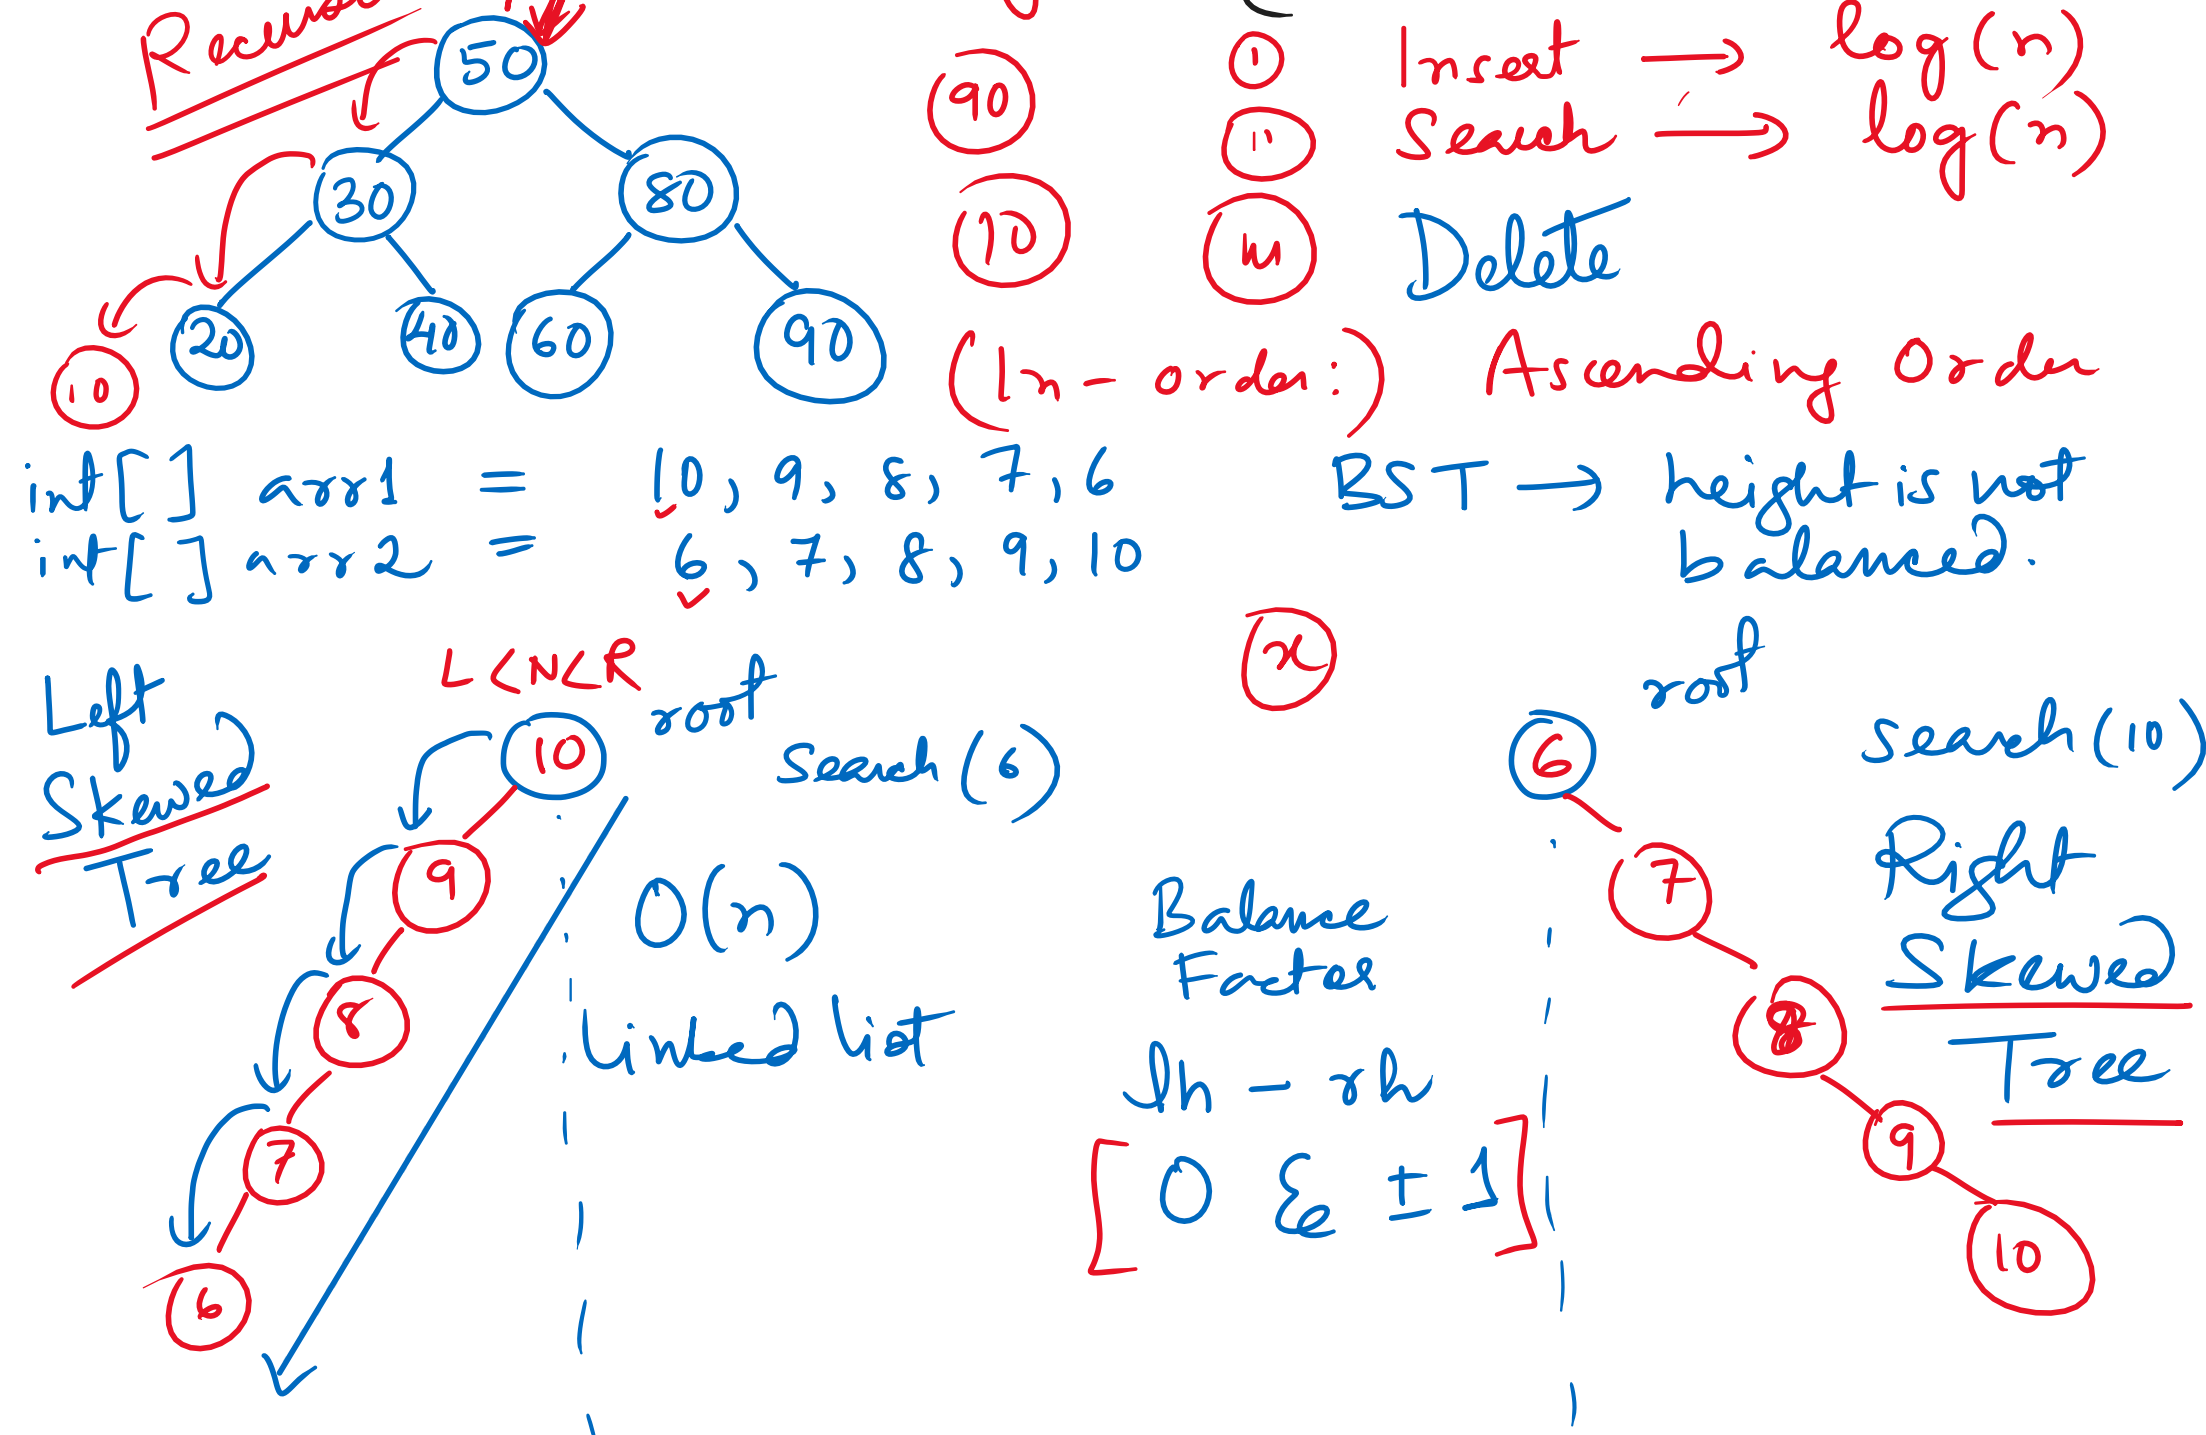 50
30 80
20 40 60 90
10
90
10
I Insert → log(n)
II Search → log(n)
III Delete
(In-order:) Ascending Order
int[] arr1 = 10, 9, 8, 7, 6
int[] arr2 = 6, 7, 8, 9, 10
BST → height is not
balanced.
Left
Skewed
Tree
L<N<R
root
10
9
8
7
6
search(6)
O(n)
Linked list
x
Balance
Factor
lh - rh
[0 & ±1]
root
6
7
8
9
10
search(10)
Right
Skewed
Tree